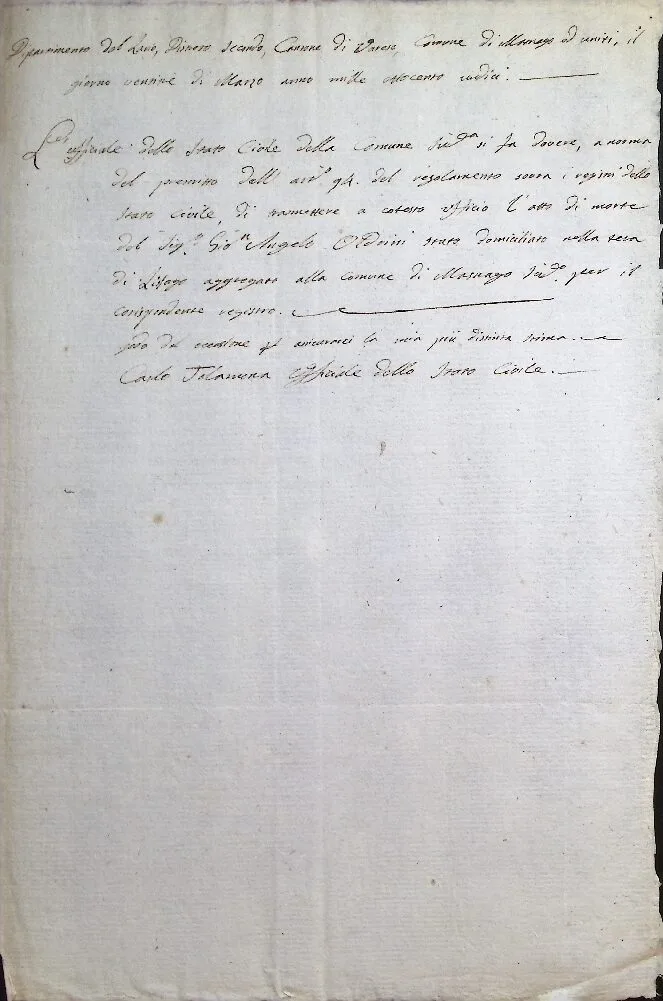 Dipartimento del Lario, Distreto Secondo, Cantone di Varese, Comune di Masnago ed uniti, il
giorno ventitre di Marzo anno mille ottocento undici.
L'ufficiale dello Stato Civile della Comune sud.a si fa dovere, a norma
del prescritto dell' art.o 94. del regolamento sovra i registri dello
Stato Civile, di trasmettere a cotesto ufficio l'atto di morte
del Sig.r Gio.n Angelo Oldrini stato domiciliato nella
di Lissago aggregato alla comune di Masnago sud.o per il
corrispondente registro.
occasione assicurarci la mia più distinta stima.
Carlo Talamona Officiale dello Stato Civile.